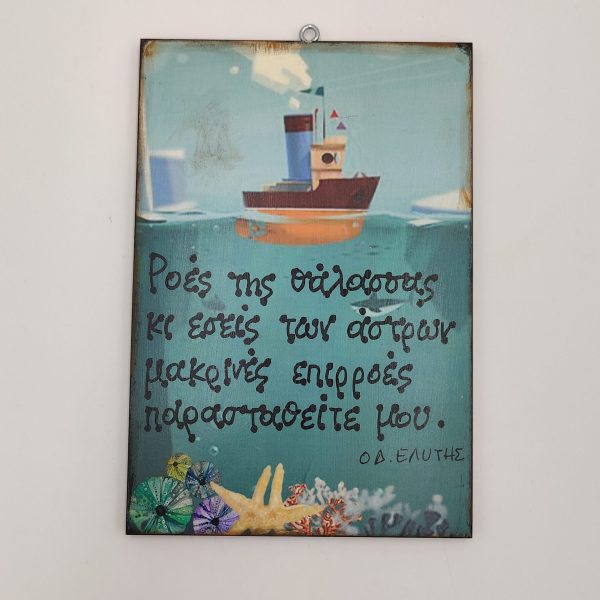 Ροές της θάλασσας
κι εσείς των άστρων
μακρινές επιρροές
παρασταθείτε μου.
Οδ. ΕΛΥΤΗΣ